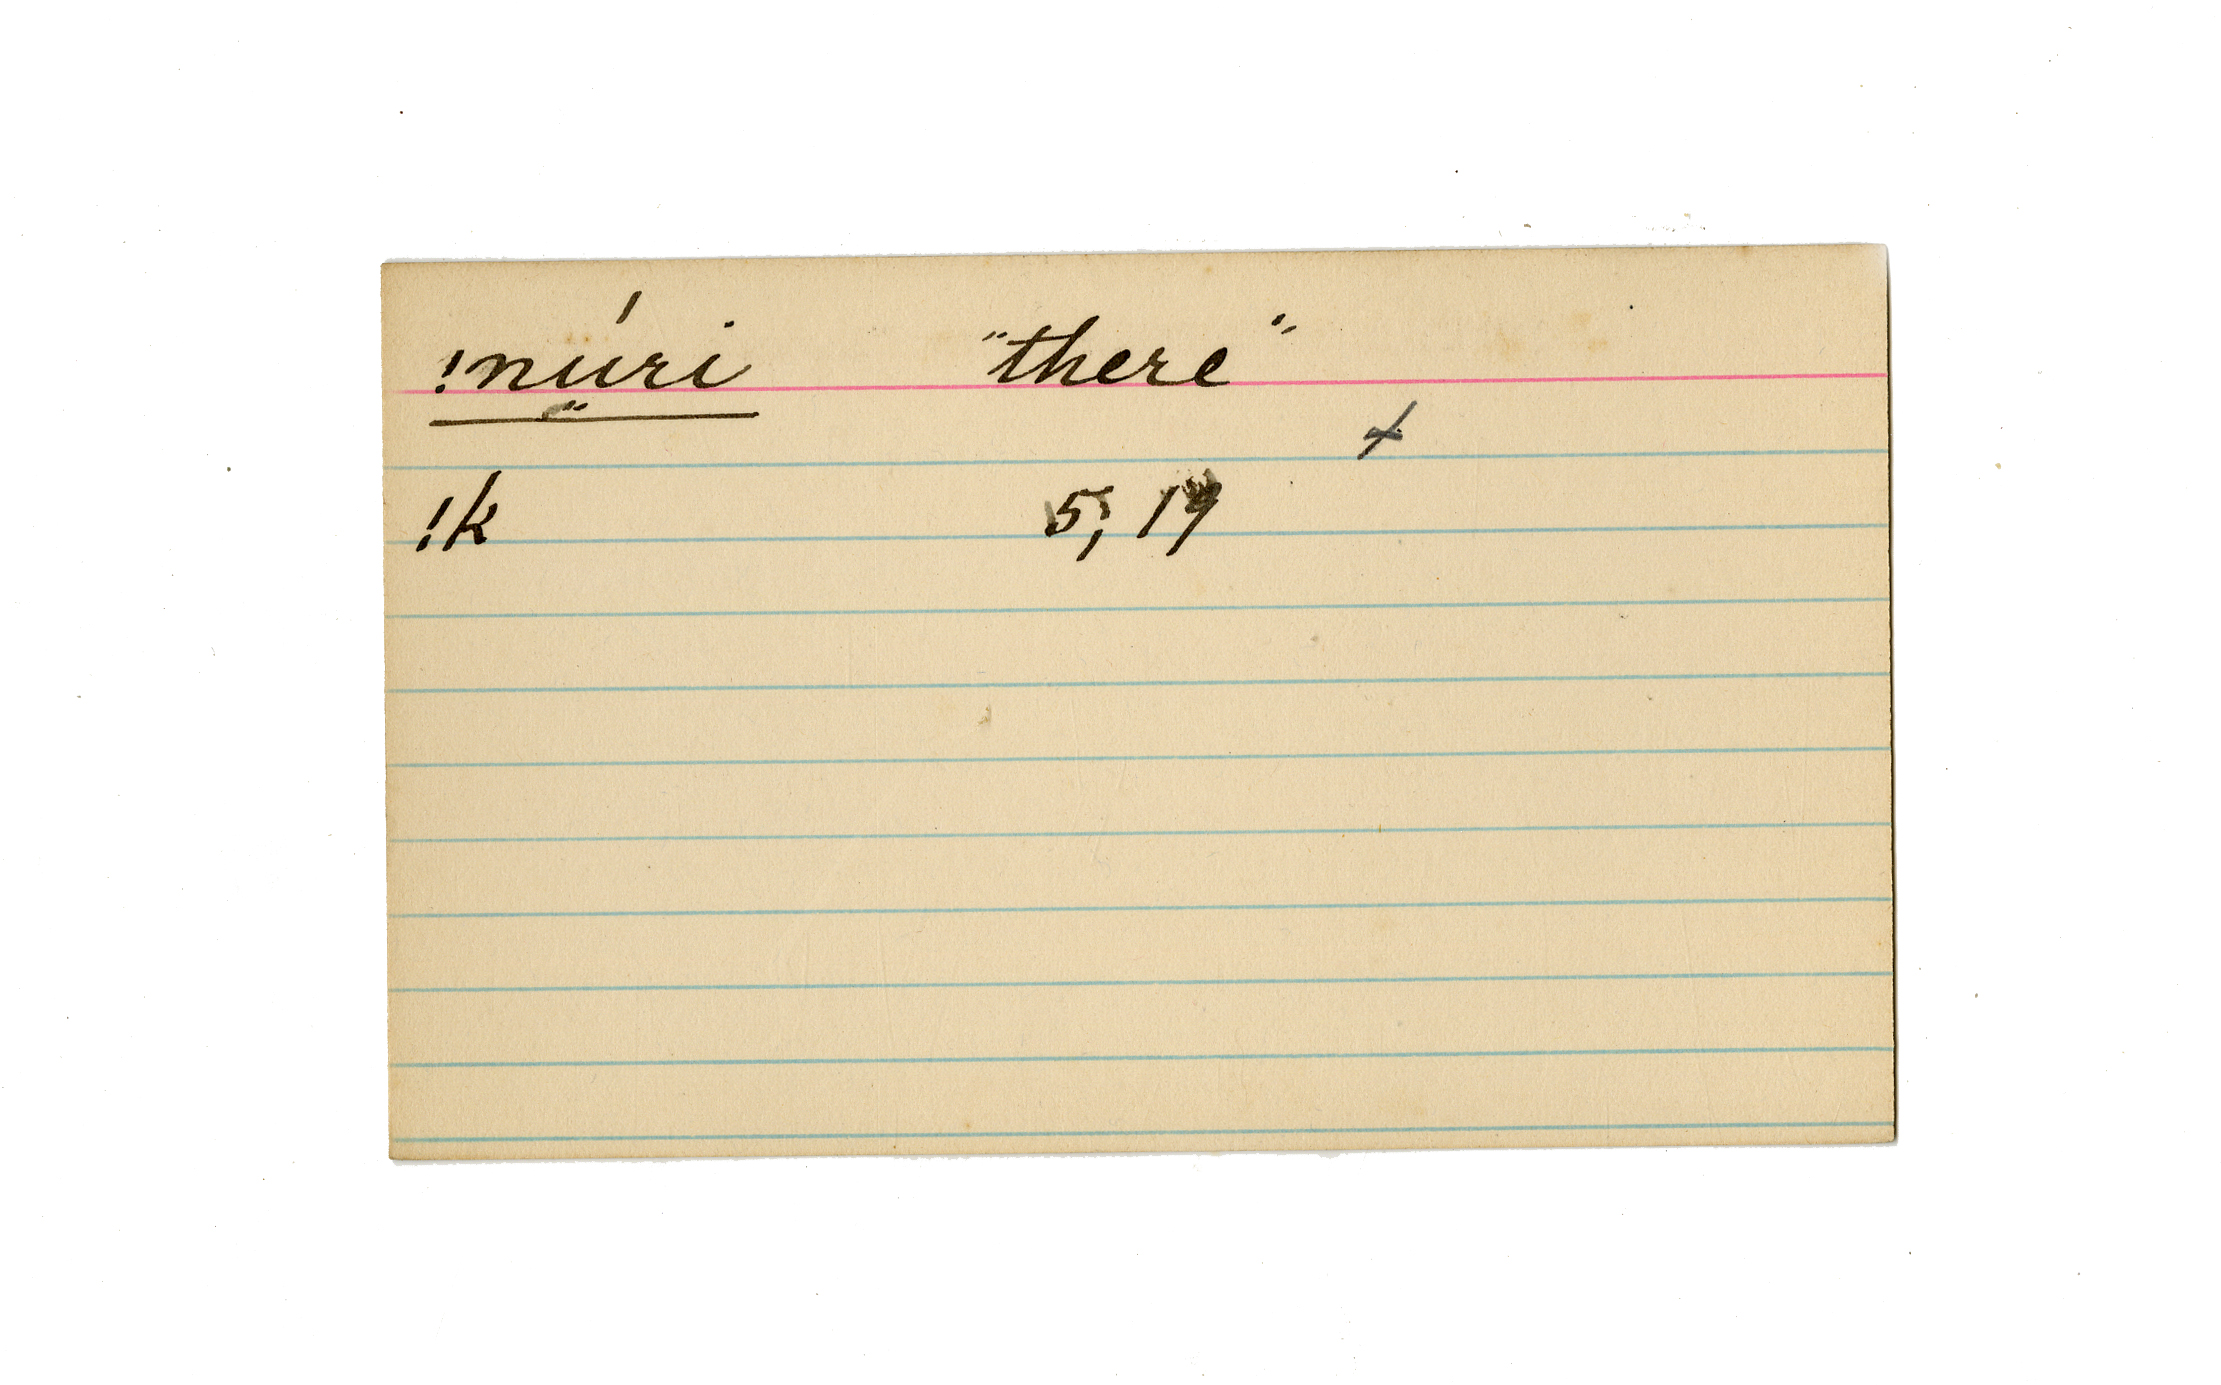 !núri "there"
+
!k 5, 19